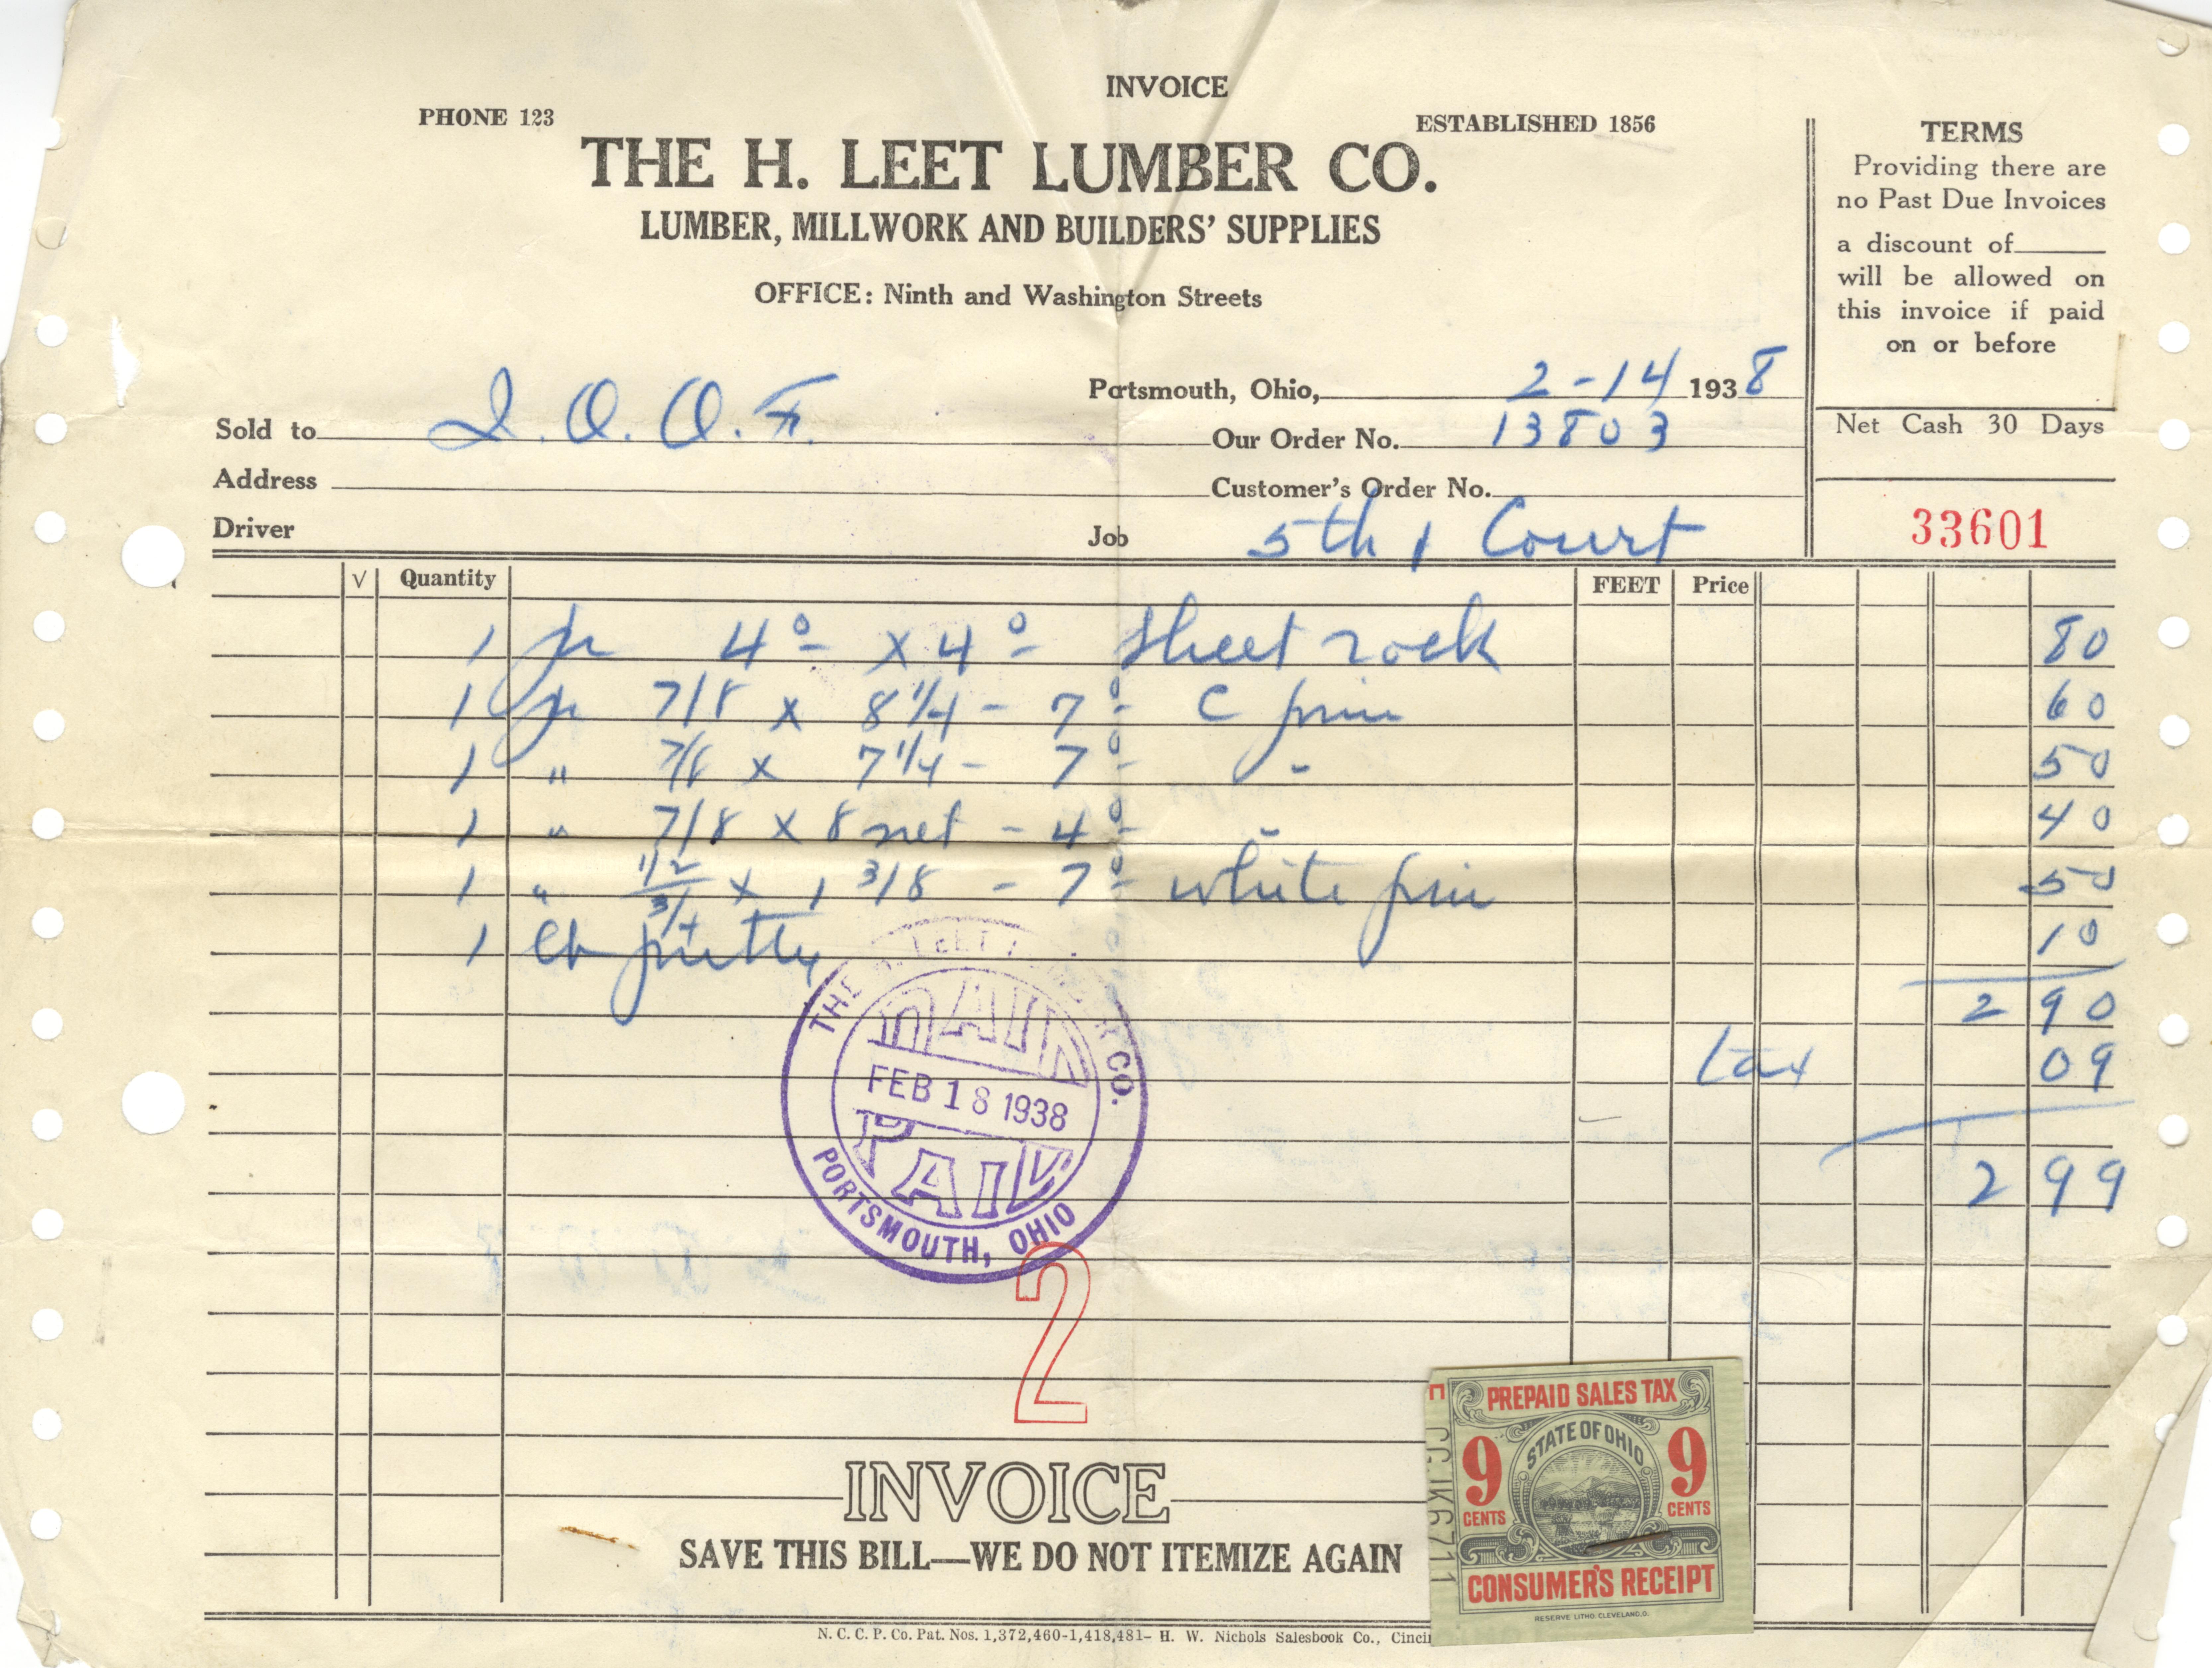 INVOICE
PHONE 123
ESTABLISHED 1856
THE H. LEET LUMBER CO.
LUMBER, MILLWORK AND BUILDERS' SUPPLIES
OFFICE: Ninth and Washington Streets
TERMS
Providing there are
no Past Due Invoices
a discount of
will be allowed on
this invoice if paid
on or before
Net Cash 30 Days
33601
Portsmouth, Ohio, 2-14 1938
Sold to I.O.O.F. Our Order No. 13803
Address Customer's Order No.
Driver Job 5th & Court
√ Quantity FEET Price
1 pc 4° - x 4° - sheet rock 80
1 pc 7/8 x 8 1/4 - 7° - C pine 60
1 " 7/8 x 7 1/4 - 7° - " 50
1 " 7/8 x 8 net - 4° - " 40
1 " 1/2 3/4 x 1 3/8 - 7° - white pine 50
1 lb putty 10
2 90
tax 09
2 99
THE H. LEET LUMBER CO.
PAID
FEB 18 1938
PAID
PORTSMOUTH, OHIO
2
INVOICE
SAVE THIS BILL—WE DO NOT ITEMIZE AGAIN
PREPAID SALES TAX
STATE OF OHIO
9 CENTS
9 CENTS
CONSUMER'S RECEIPT
RESERVE LITHO. CLEVELAND, O.
N. C. C. P. Co. Pat. Nos. 1,372,460-1,418,481- H. W. Nichols Salesbook Co., Cinci